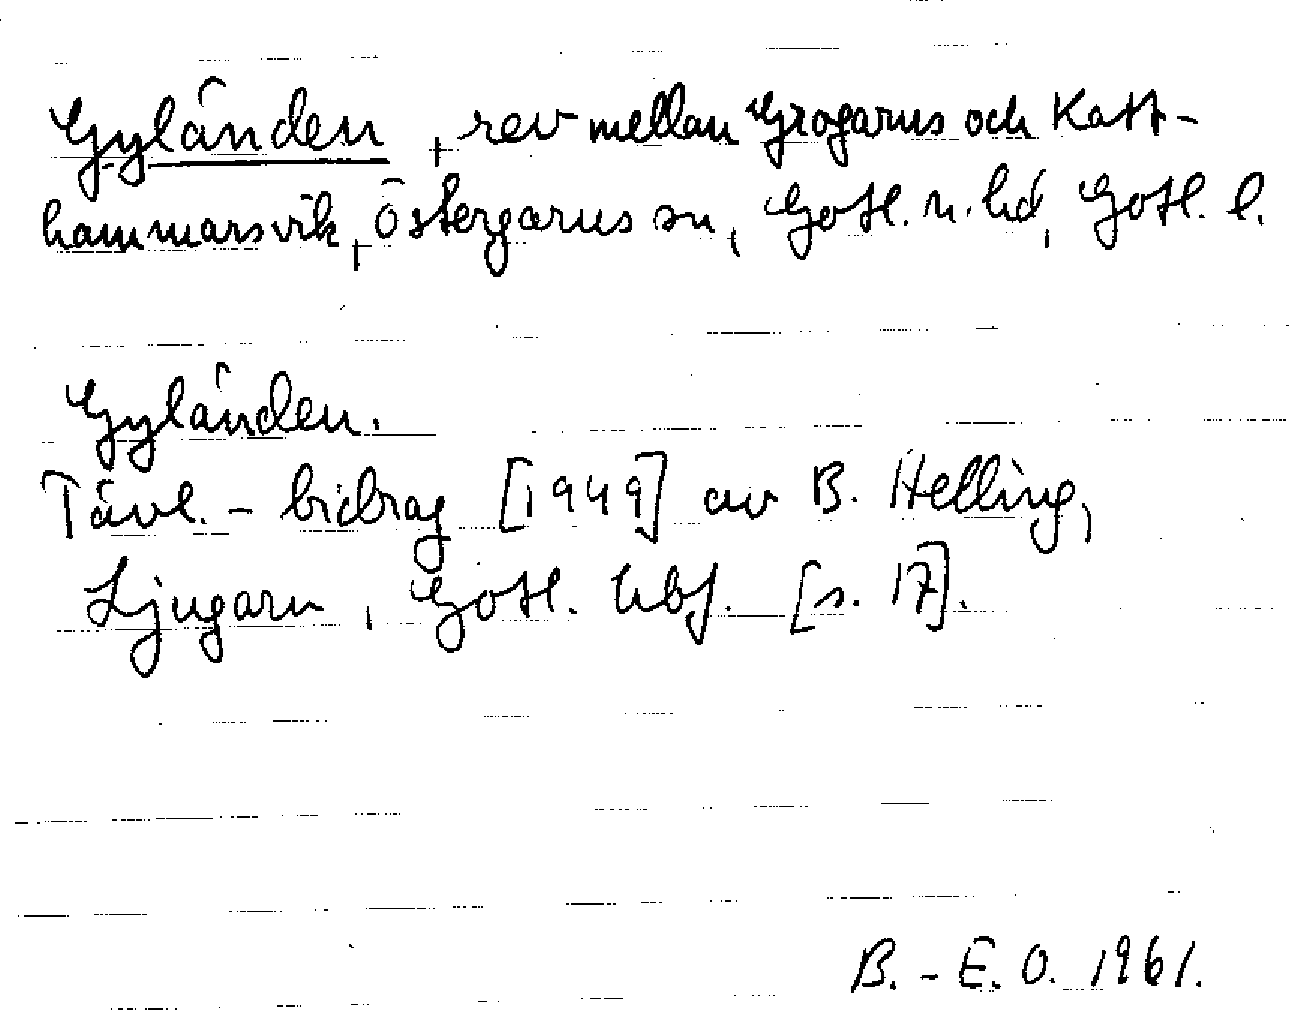 Gyländen, rev mellan Grogarns och Katt-
hammarsvik, Östergarns sn, Gotl. n. hd, Gotl. l.
Gyländen.
Tävl. - bidrag [1949] av B. Helling,
Ljugarn, Gotl. Ubf. [s. 17].
B. - E. O. 1961.